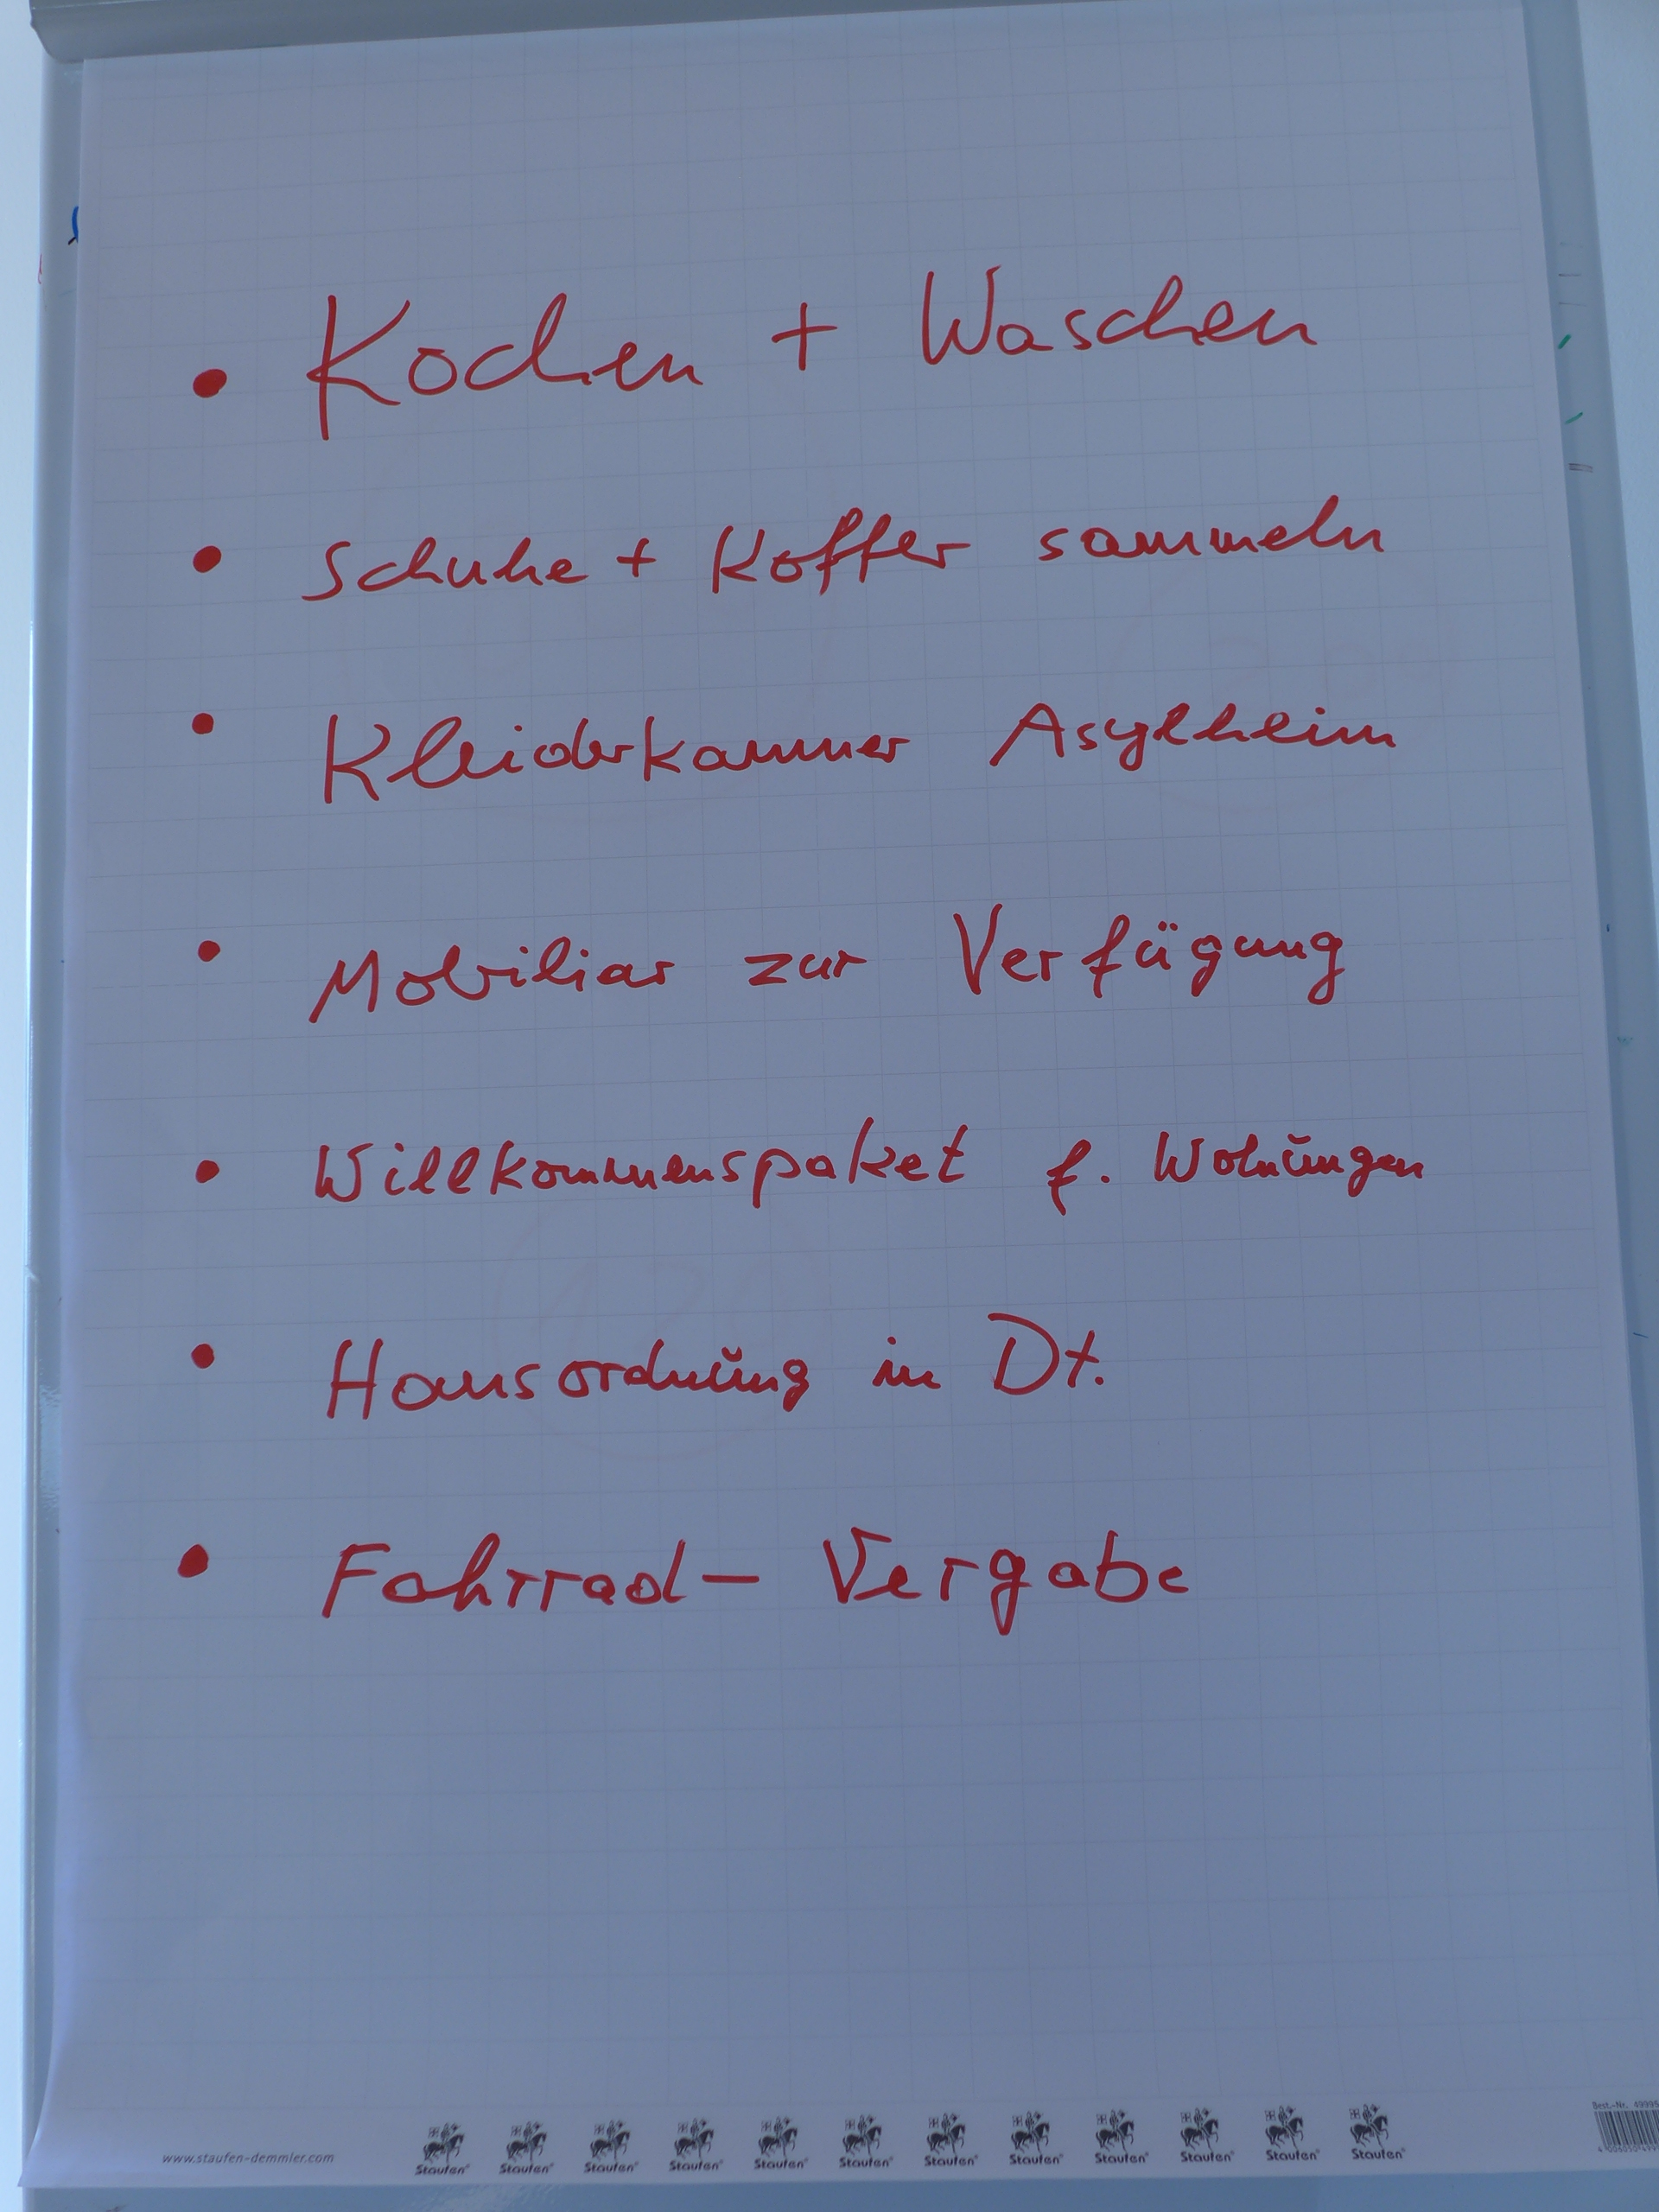 • Kochen + Waschen
• Schuhe + Koffer sammeln
• Kleiderkammer Asylheim
• Mobiliar zur Verfügung
• Willkommenspaket f. Wohnungen
• Hausordnung in Dt.
• Fahrrad- Vergabe
www.staufen-demmler.com
Staufen® Staufen® Staufen® Staufen® Staufen® Staufen® Staufen® Staufen® Staufen® Staufen® Staufen® Staufen®
Best.-Nr.